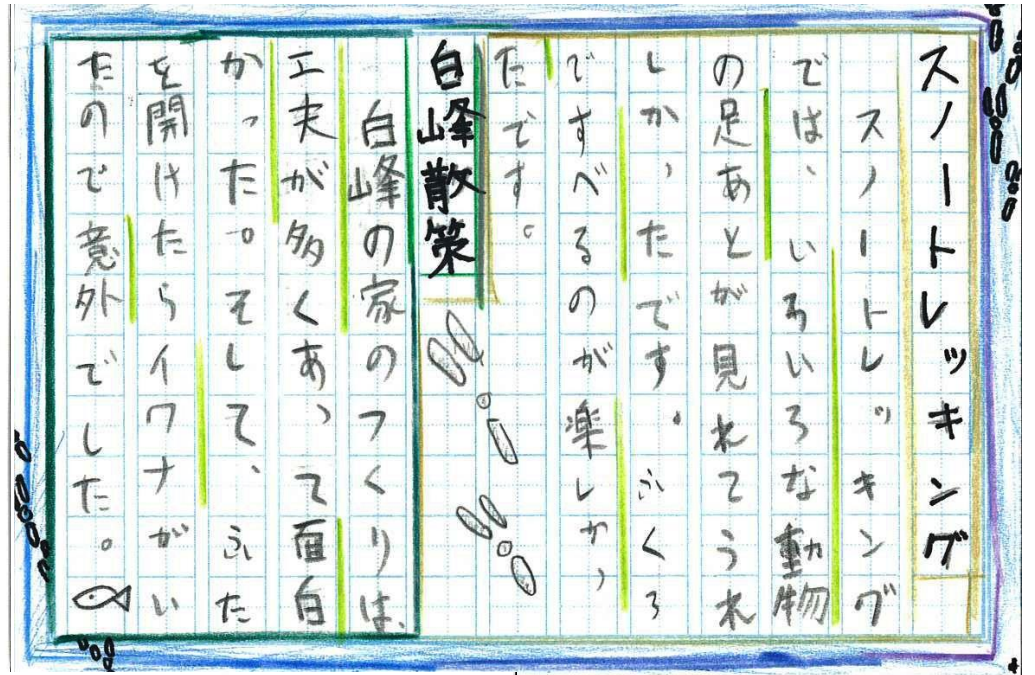 スノートレッキング
スノートレッキング
では、いろいろな動物
の足あとが見れてうれ
しかったです。ふくろ
ですべるのが楽しかっ
たです。
白峰散策
白峰の家のつくりは、
工夫が多くあって面白
かった。そして、ふた
を開けたらイワナがい
たので意外でした。